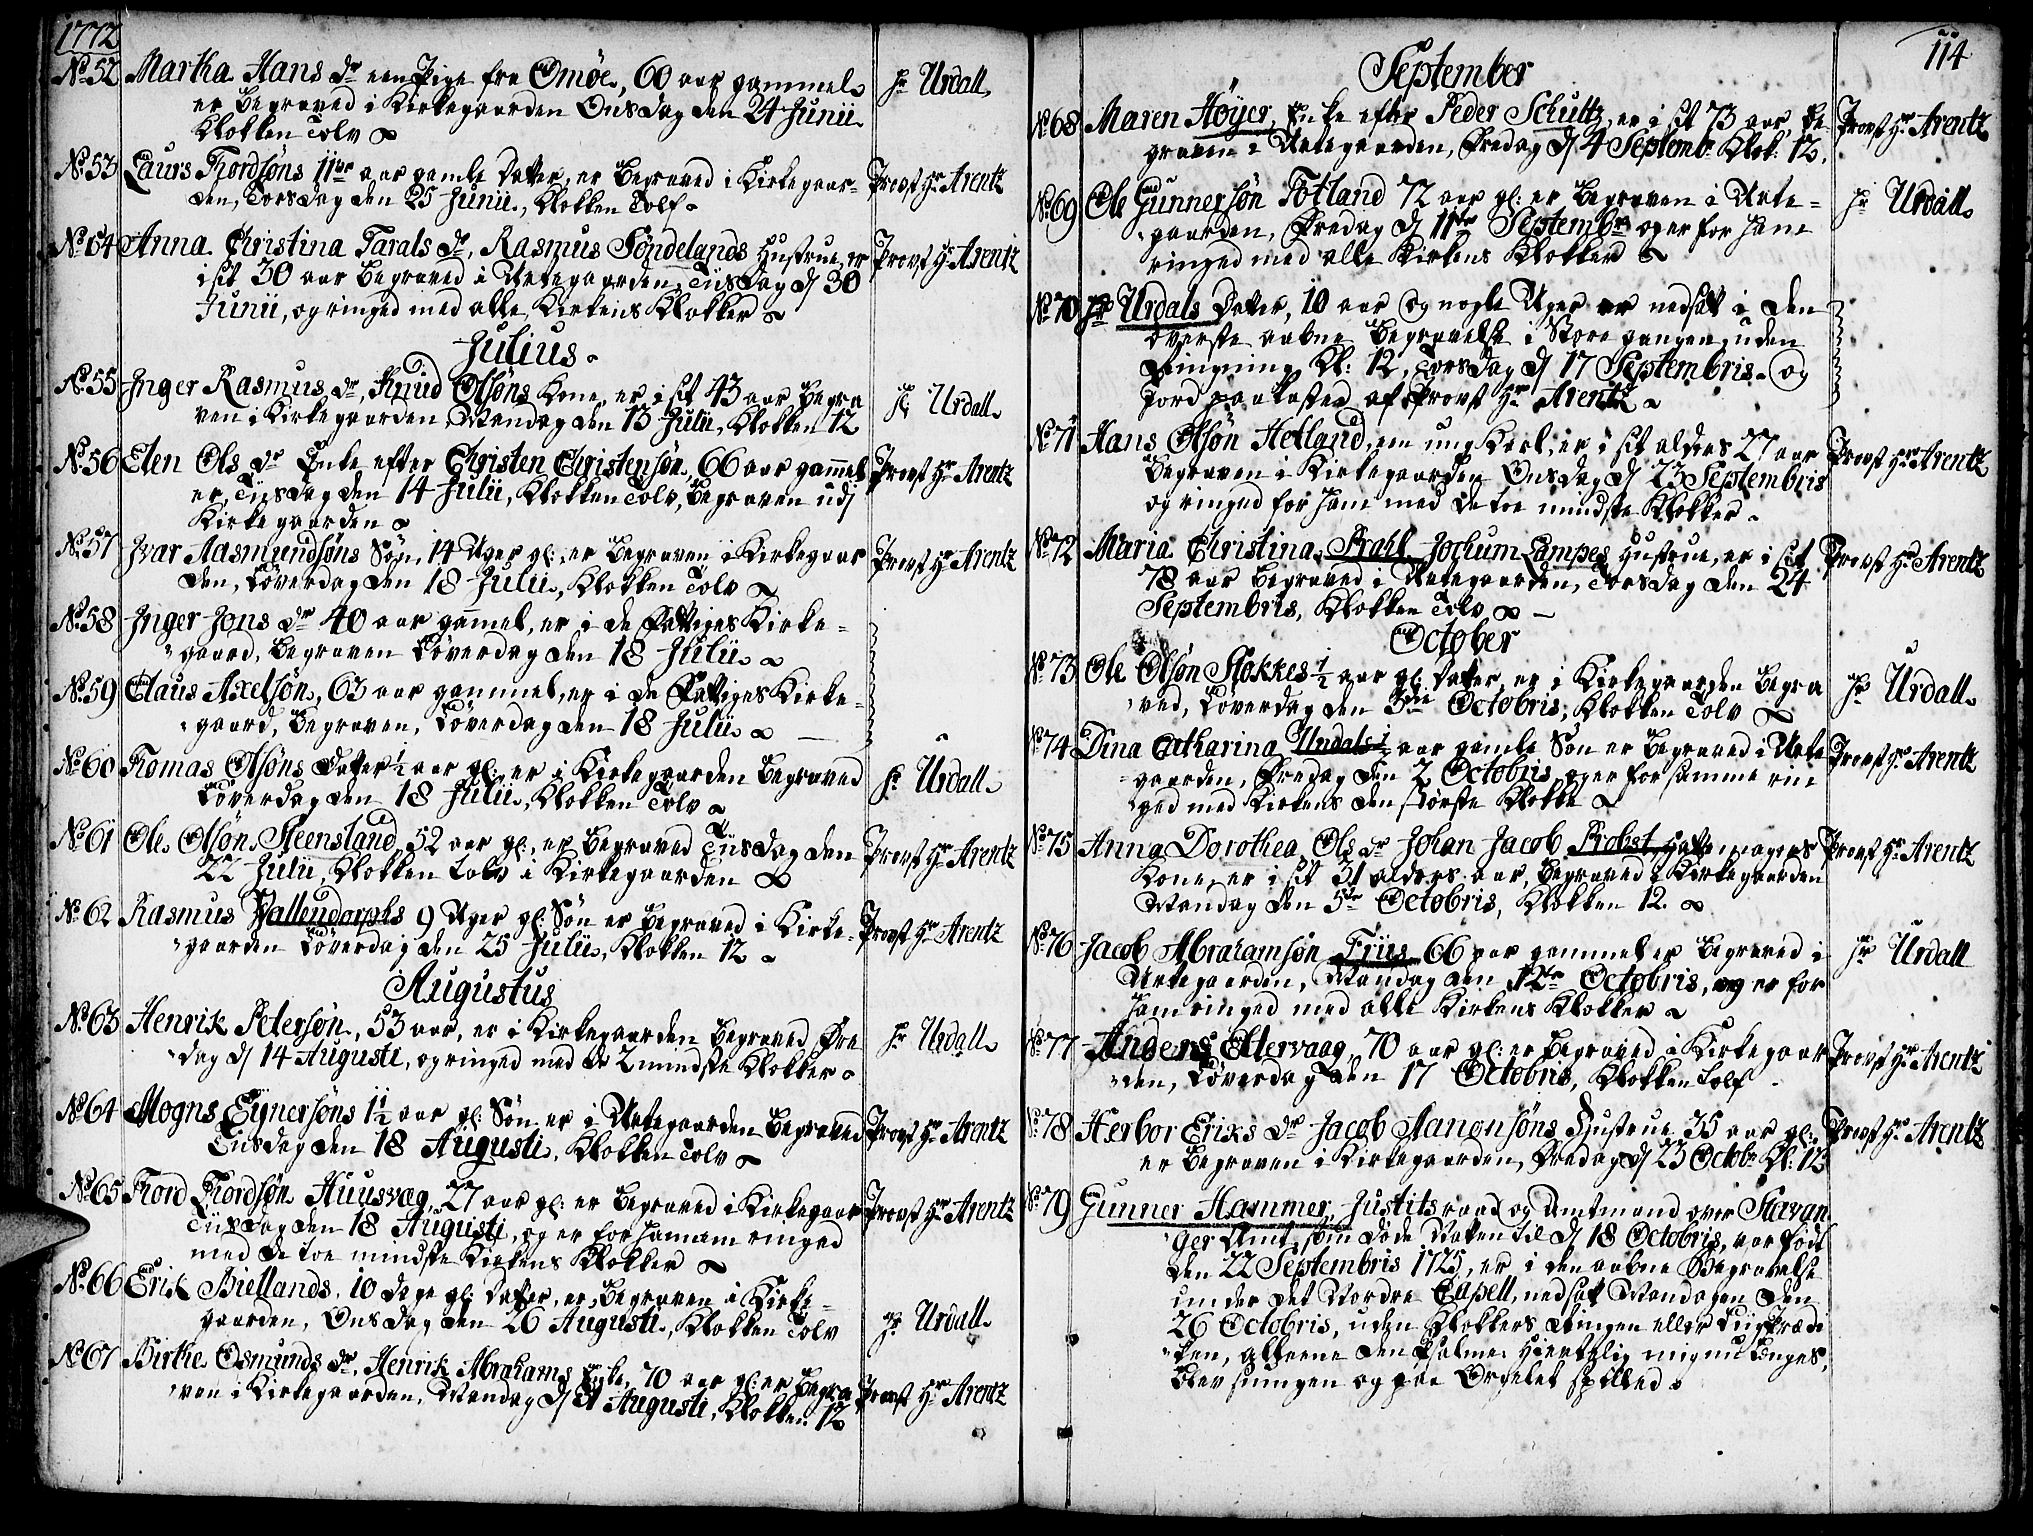 1772
No. 52 Martha Hans dr een Pige fra Omøe, 60 aar gammel
er Begraved i Kirkegaarden Onsdag den 24 Junii
Klokken Tolv
Hr Urdall
No. 53 Laurs Tiordsøns 11te aar gamle Datter, er Begraved i Kirkegaar-
den, Torsdag den 25 Junii, Klokken Tolf.
Provst Hr Arentz
No. 54 Anna Christina Tarals dr, Rasmus Söndelands Hustrue, er
i sit 30 aar Begraved i Urtegaarden, Tiisdag d 30
Junii, og ringed med alle Kirkens Klokker
Provst Hr Arentz
Julius.
No. 55 Inger Rasmus dr, Knud Olsøns Kone, er i sit 43 aar Begra
ven i Kirkegaarden, Mandag den 13 Julii, Klokken 12
Hr Urdall
No. 56 Elen Ols dr Enke efter Christen Christensøn, 66 aar gammel
er, Tiisdag den 14 Julii, Klokken Tolv, Begraven udj
Kirkegaarden
Provst Hr Arentz
No. 57 Ivar Aasmundsøns Søn, 14 Uger gl: er Begraven i Kirkegaar
den, Løverdag den 18 Julii, Klokken Tolv
Provst Hr Arentz
No. 58 Inger Jons dr 40 aar gammel, er i de Fattiges Kirke-
gaard, Begraven Løverdag den 18 Julii.
No. 59 Claus Axelsøn, 63 aar gammel, er i de Fattiges Kirke-
gaard, Begraven, Løverdag den 18 Julii.
No. 60 Tiomas Olsøns Datter 1/2 aar gl: er i Kirkegaarden Begraved
Løverdag den 18 Julii, Klokken Tolv
Hr Urdall
No. 61 Ole Olsøn Steensland, 52 aar gl: er Begraved Tiisdag den
22 Julii, Klokken Tolv i Kirkegaarden
Provst Hr Arentz
No. 62 Rasmus Vallendorphs 9 Uger gl: Søn er Begraved i Kirke-
gaarden Løverdag den 25 Julii, Klokken 12
Provst Hr Arentz
Augustus
No. 63 Henrik Petersøn, 53 aar, er i Kirkegaarden Begraved, Fre
dag d 14 Augusti, og ringed med de 2 mindste Klokker
Hr Urdall
No. 64 Mogns Eignersøns 1 1/2 aar gl: Søn er i Urtegaarden Begraved
Tiisdag den 18 Augusti, Klokken Tolv
Provst Hr Arentz
No. 65 Tiord Tiordsøn Huusvæg, 27 aar gl: er Begraved i Kirkegaar
Tiisdag den 18 Augusti, og er for hannem ringed
med de toe mindste Kirkens Klokker
Provst Hr Arentz
No. 66 Erik Biellands, 10 dage gl: Datter, er Begraven i Kirke-
gaarden, Onsdag den 26 Augusti, Klokken Tolv
Hr Urdall
No. 67 Birthe Osmunds dr, Henrik Abrahams Enke, 70 aar gl: er Begra
ven i Kirkegaarden, Mandag d 31 Augusti, Klokken 12
Provst Hr Arentz
114
September
No. 68 Maren Høyer, Enke efter Peder Schultz, er i sit 73 aar Be
graven i Urtegaarden, Fredag d 4 Septemb. Klok. 12.
Provst Hr Arentz
No. 69 Ole Gunnersøn Totland 72 aar gl: er Begraven i Urte-
gaarden, Fredag d 11te Septembr. og er for ham
ringed med alle Kirkens Klokker
Hr Urdall
No. 70 Hr Urdals Datter, 10 aar og nogle Uger er nedsat i den
øverste aabne Begravelse i Store gangen, uden
Ringning Kl: 12, Torsdag d 17 Septembris. og
Jord paakasted af Provst Hr Arentz
No. 71 Hans Olsøn Hetland, em ung Karl, er i sit alders 27 aar
Begraven i Kirkegaarden Onsdag d 23 Septembris
og ringed for ham med de toe mindste Klokker.
Provst Hr Arentz
No. 72 Maria Christina Prahl Jochum Lampes Hustrue, er i sit
78 aar Begraved i Urtegaarden, Torsdag den 24
Septembris, Klokken Tolv
Provst Hr Arentz
October
No. 73 Ole Olsøn Stokkes 1/2 aar gl: Datter, er i Kirkegaarden Begra
ved, Løverdag den 3die Octobris, Klokken Tolv
Hr Urdall
No. 74 Dina Catharina Undals 1/2 aar gamle Søn er Begraved i Urte
gaarden, Fredag den 2 Octobris, og er for samme rin
ged med Kirkens den største Klokke
Provst Hr Arentz
No. 75 Anna Dorothea Ols dr Johan Jacob Probst Hattemagers
Kone, er i sit 31 alders aar, Begraved i Kirkegaarden
Mandag den 5te Octobris, Klokken 12.
Provst Hr Arentz
No. 76 Jacob Abrahamsøn Friis 66 aar gammel er Begraved i
Urtegaarden, Mandag den 12te Octobris, og er for
ham ringed med alle Kirkens Klokker
Hr Urdall
No. 77 Anders Ellervaag, 70 aar gl: er Begraved i Kirkegaar
den, Løverdag den 17 Octobris, Klokken Tolf
Provst Hr Arentz
No. 78 Herbor Eriks dr Jacob Aanonsøns Hustrue 35 aar gl:
er Begraven i Kirkegaarden, Fredag d 23 Octobr. Kl: 12
Provst Hr Arentz
No. 79 Gunner Hammer, Justitsraad og Amtmand over Stavan
ger Amt, som døde Natten til d 18 Octobris, var født
den 22 Septembris 1725, er i den aabne Begravelse
under det Nordre Capell, nedsat Mandagen den
26 Octobris, uden Klokkers Ringen eller Liig Prædi
ken, alleene den Psalme: Hiertelig mig nu længes,
blev sungen og paa Orgelet spilled.